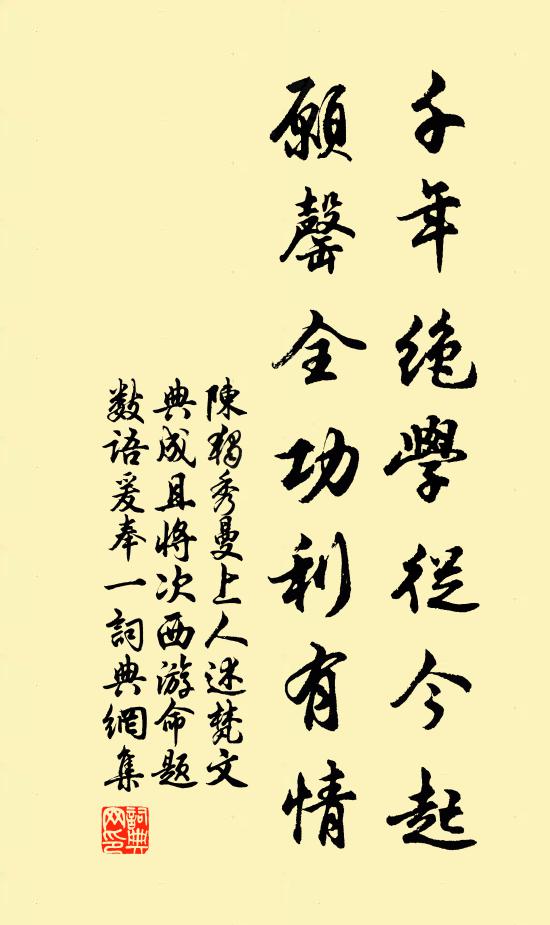 千年絶學從今起
願罄全功利有情
陳獨秀曼上人述梵文
典成且將次西游命題
數語爰奉一詞典網集
詞典網印